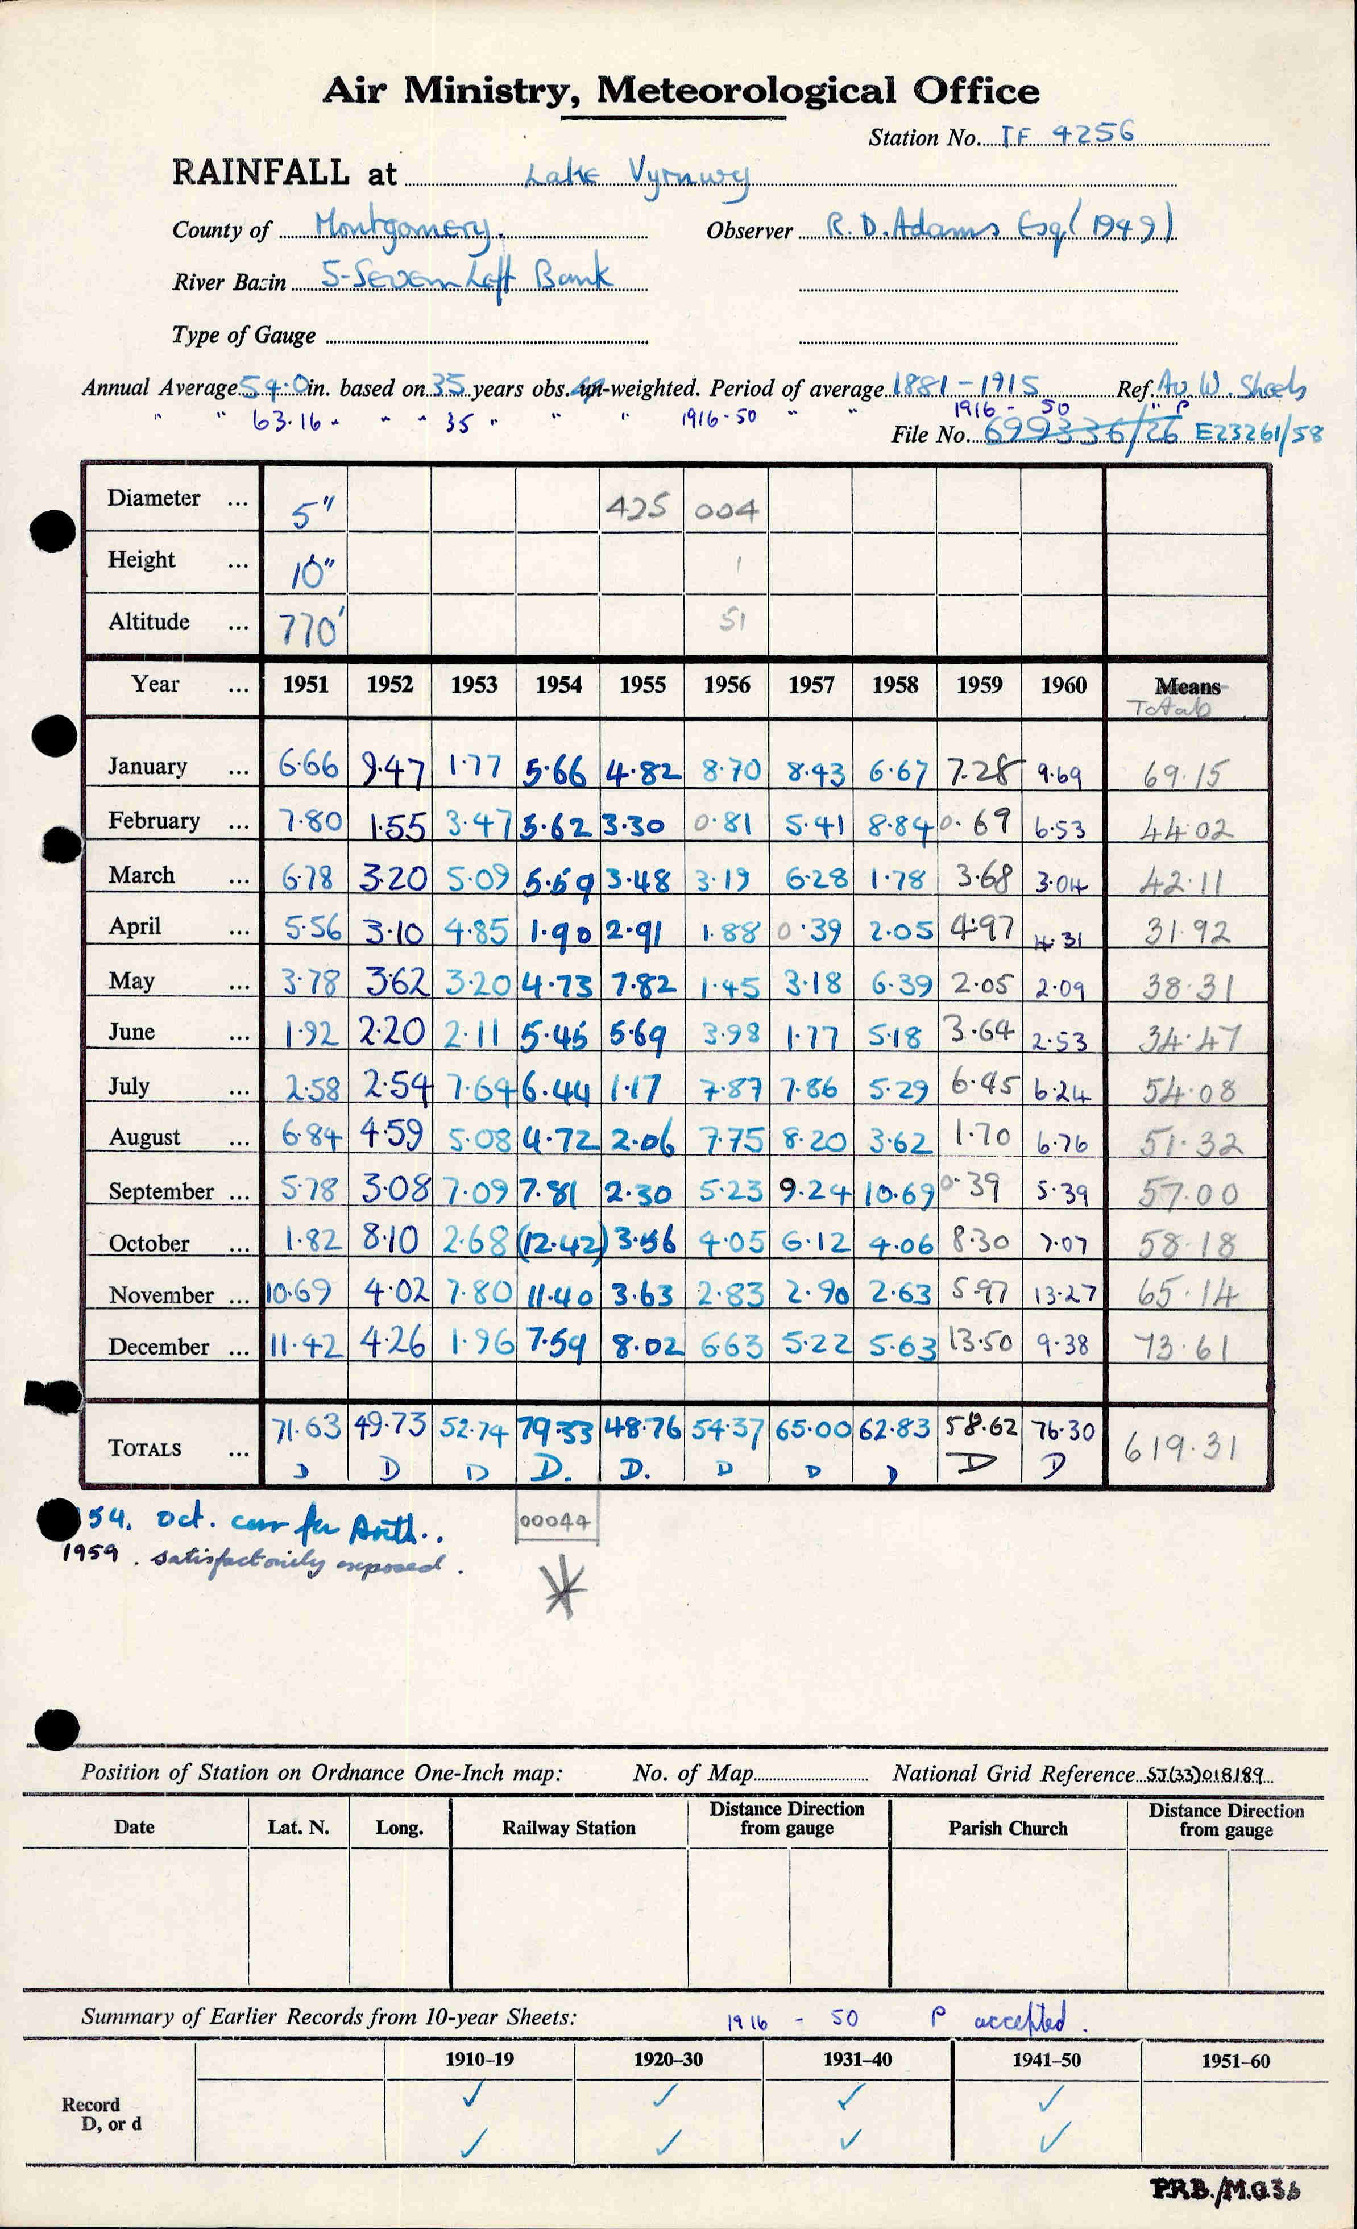 Air Ministry, Meteorological Office
Station No. IF 4256
RAINFALL at Lake Vyrnwy
County of Montgomery. Observer R. D. Adams Esq (1949)
River Basin 5-Severn Left Bank
Type of Gauge
Annual Average 54.0 in. based on 35 years obs. un-weighted. Period of average 1881-1915 Ref. Av. W. Sheets
" " 63.16 " " " 35 " " " 1916-50 " " 1916 - 50 " P
File No. 699336/26 E23261/58
Diameter ... 5" 425 004
Height ... 10" 1
Altitude ... 770' 51
Year ... 1951 1952 1953 1954 1955 1956 1957 1958 1959 1960 Means
Totals
January ... 6.66 9.47 1.77 5.66 4.82 8.70 8.43 6.67 7.28 9.69 69.15
February ... 7.80 1.55 3.47 5.62 3.30 0.81 5.41 8.84 0.69 6.53 44.02
March ... 6.78 3.20 5.09 5.59 3.48 3.19 6.28 1.78 3.68 3.04 42.11
April ... 5.56 3.10 4.85 1.90 2.91 1.88 0.39 2.05 4.97 4.31 31.92
May ... 3.78 3.62 3.20 4.73 7.82 1.45 3.18 6.39 2.05 2.09 38.31
June ... 1.92 2.20 2.11 5.45 5.69 3.98 1.77 5.18 3.64 2.53 34.47
July ... 2.58 2.54 7.64 6.44 1.17 7.87 7.86 5.29 6.45 6.24 54.08
August ... 6.84 4.59 5.08 4.72 2.06 7.75 8.20 3.62 1.70 6.76 51.32
September ... 5.78 3.08 7.09 7.81 2.30 5.23 9.24 10.69 0.39 5.39 57.00
October ... 1.82 8.10 2.68 (12.42) 3.56 4.05 6.12 4.06 8.30 7.07 58.18
November ... 10.69 4.02 7.80 11.40 3.63 2.83 2.90 2.63 5.97 13.27 65.14
December ... 11.42 4.26 1.96 7.59 8.02 6.63 5.22 5.63 13.50 9.38 73.61
TOTALS ... 71.63 49.73 52.74 79.33 48.76 54.37 65.00 62.83 58.62 76.30 619.31
D D D D. D. D D D D D
54. Oct. corr for Arith.. 00044
1959. satisfactorily exposed.
Position of Station on Ordnance One-Inch map: No. of Map National Grid Reference SJ(33)018189
Date Lat. N. Long. Railway Station Distance Direction from gauge Parish Church Distance Direction from gauge
Summary of Earlier Records from 10-year Sheets: 1916 - 50 P accepted.
1910-19 1920-30 1931-40 1941-50 1951-60
Record ✓ ✓ ✓ ✓
D, or d ✓ ✓ ✓ ✓
P.R.B./M.O.36